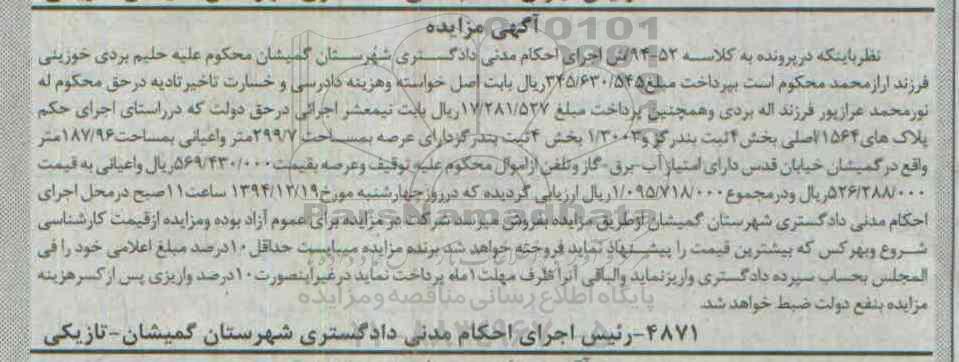 آگهی مزایده
نظر باینکه در پرونده به کلاسه ۵۲-۹۴ش اجرای احکام مدنی دادگستری شهرستان گمیشان محکوم علیه حلیم بردی خوزینی
فرزند ارازمحمد محکوم است بپرداخت مبلغ ۳۴۵/۶۳۰/۵۴۵ریال بابت اصل خواسته وهزینه دادرسی و خسارت تاخیر تادیه درحق محکوم له
نورمحمد عرازپور فرزند اله بردی وهمچنین پرداخت مبلغ ۱۷/۲۸۱/۵۲۷ریال بابت نیمعشر اجرائی درحق دولت که درراستای اجرای حکم
پلاک های ۱۵۶۴اصلی بخش ۴ثبت بندر گز و ۱/۳۰۰۳ بخش ۴ثبت بندرگزدارای عرصه بمساحت ۲۹۹/۷متر واعیانی بمساحت۱۸۷/۹۶متر
واقع در گمیشان خیابان قدس دارای امتیاز آب-برق-گاز وتلفن ازاموال محکوم علیه توقیف وعرصه بقیمت ۵۶۹/۴۳۰/۰۰۰ریال واعیانی به قیمت
۵۲۶/۲۸۸/۰۰۰ریال ودرمجموع ۱/۰۹۵/۷۱۸/۰۰۰ریال ارزیابی گردیده که درروزچهارشنبه مورخ۱۳۹۴/۱۲/۱۹ ساعت۱۱صبح درمحل اجرای
احکام مدنی دادگستری شهرستان گمیشان ازطریق مزایده بفروش میرسد شرکت در مزایده برای عموم آزاد بوده ومزایده ازقیمت کارشناسی
شروع وبهرکس که بیشترین قیمت را پیشنهاد نماید فروخته خواهد شد برنده مزایده میبایست حداقل ۱۰درصد مبلغ اعلامی خود را فی
المجلس بحساب سپرده دادگستری واریزنماید والباقی آنرا ظرف مهلت۱ماه پرداخت نماید درغیراینصورت ۱۰درصد واریزی پس از کسرهزینه
مزایده بنفع دولت ضبط خواهد شد.
۴۸۷۱-رئیس اجرای احکام مدنی دادگستری شهرستان گمیشان-تازیکی
ParsNamadData
پایگاه اطلاع رسانی مناقصه و مزایده